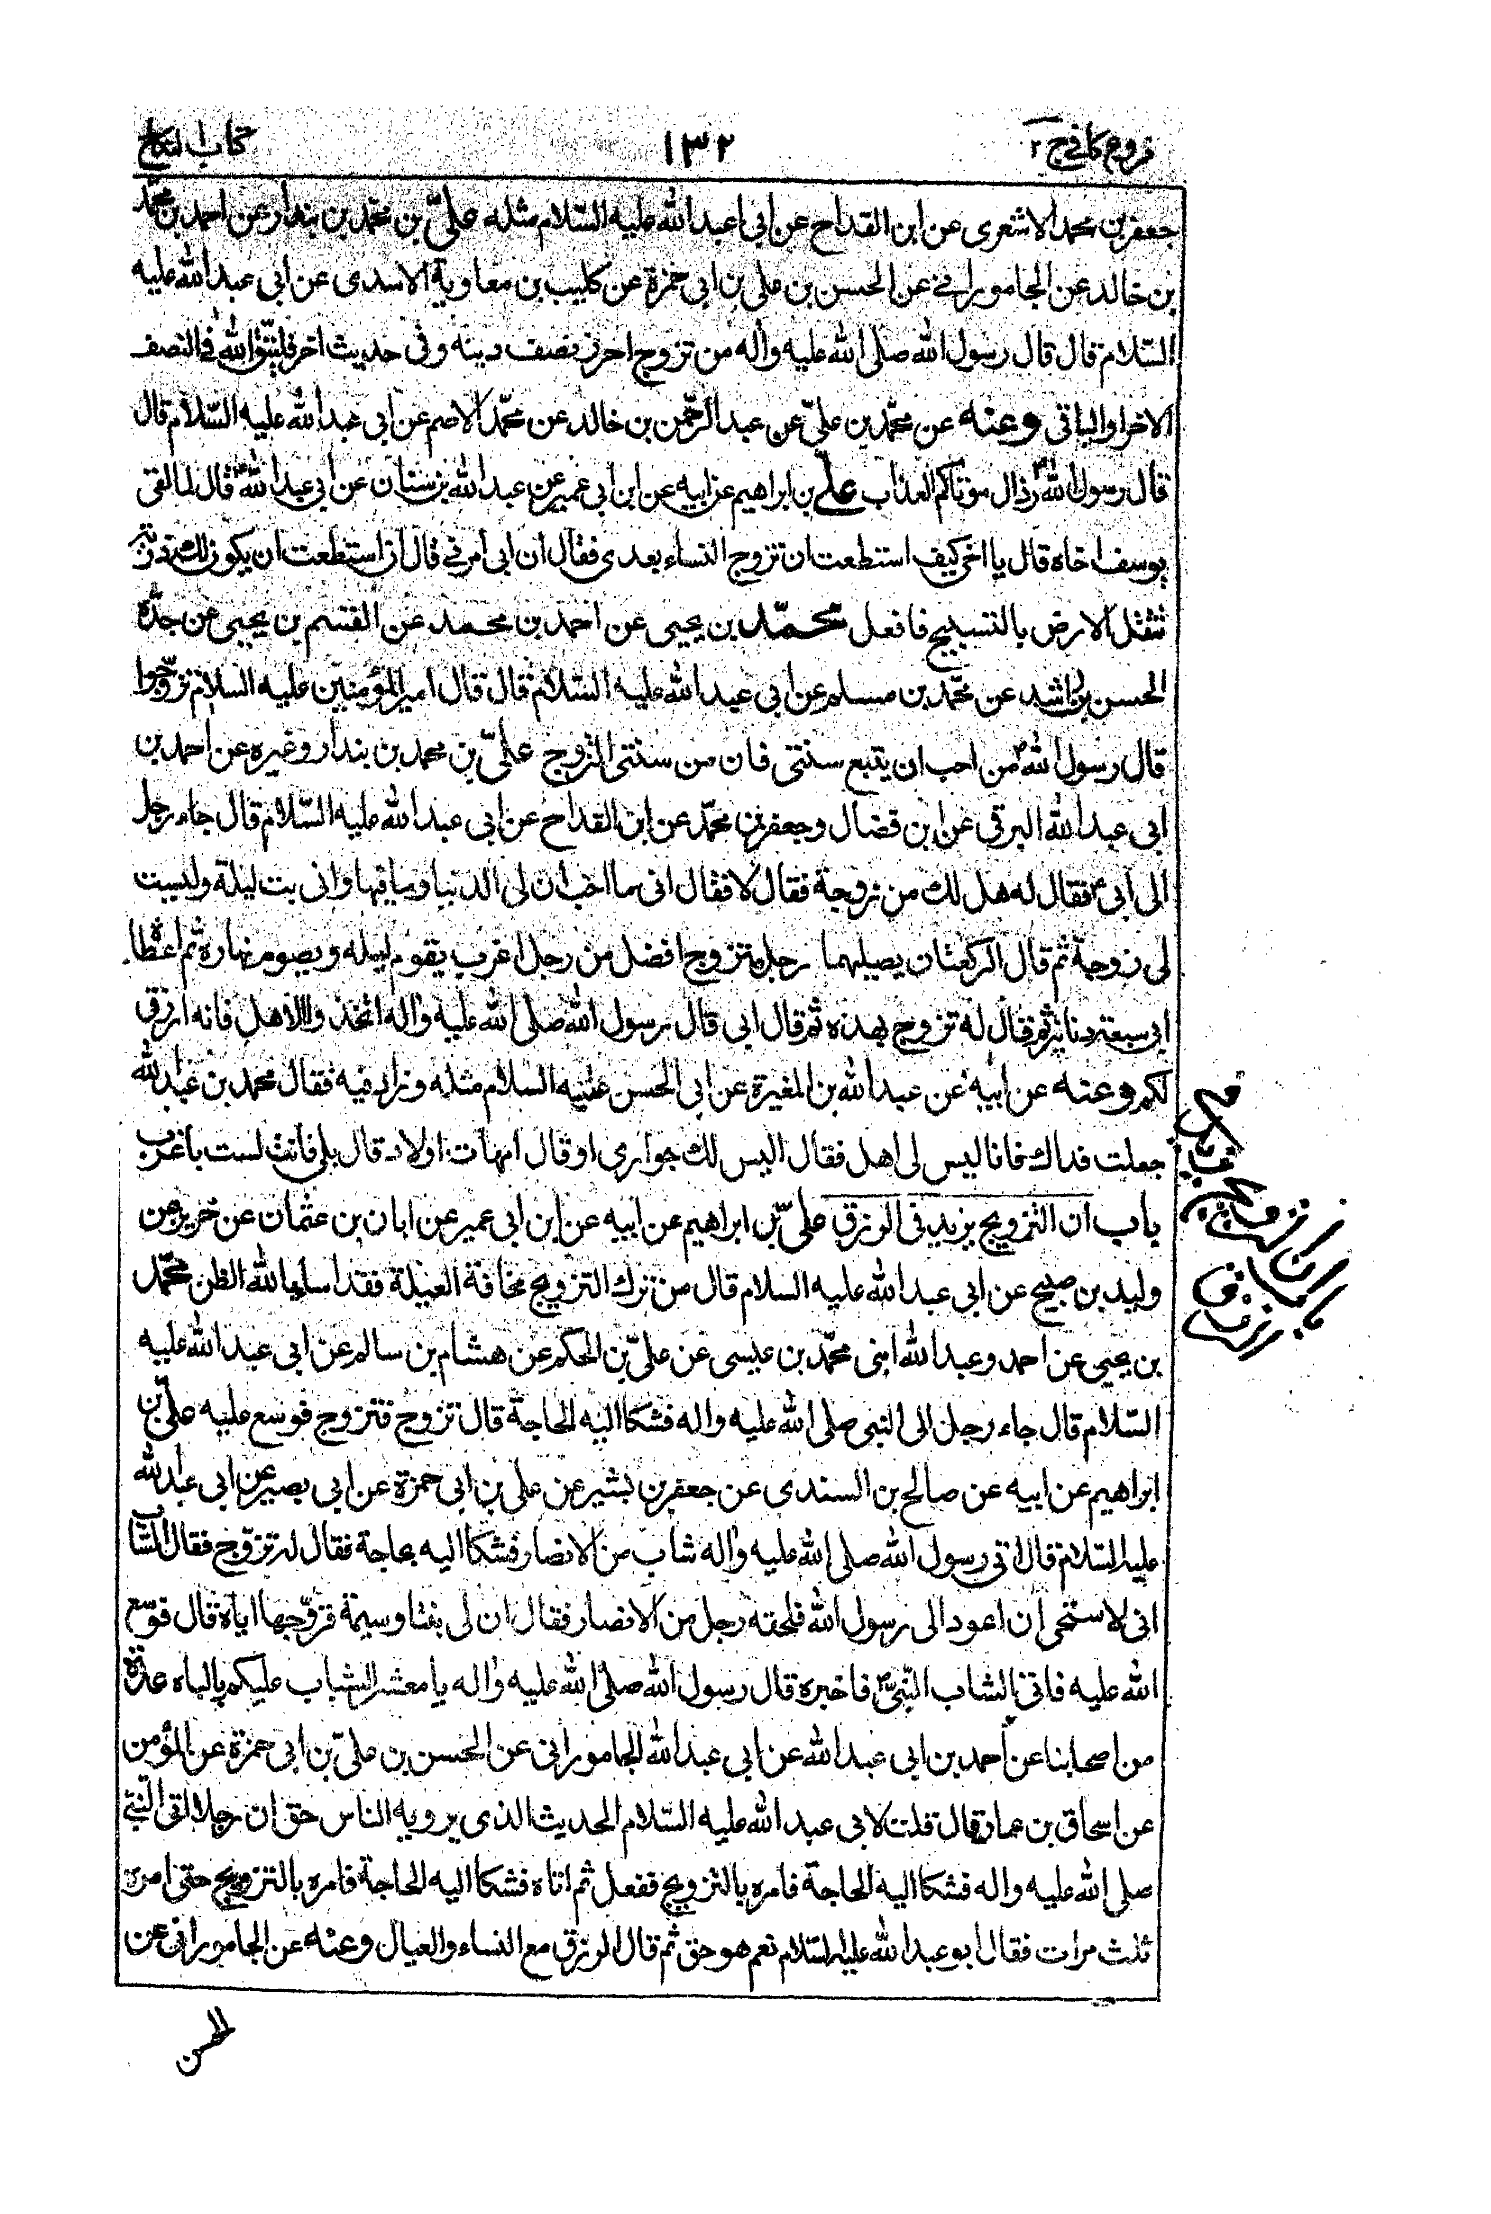 فروع کافی ج ۲
۱۳۲
کتاب النکاح
جعفر بن محمد الاشعری عن ابن القداح عن ابی عبد الله علیه السّلام مثله علیّ بن محمّد بن بندار عن احمد بن محمّد
بن خالد عن الجامورانی عن الحسن بن علی بن ابی حمزة عن کلیب بن معاویة الاسدی عن ابی عبد الله علیه
السّلام قال قال رسول الله صلی الله علیه واله من تزوج احرز نصف دینه وفی حدیث اخر فلیتّق الله فی النصف
الاخر او الباقی وعنه عن محمّد بن علیّ عن عبد الرّحمن بن خالد عن محمّد الاصم عن ابی عبد الله علیه السّلام قال
قال رسول الله ص رذال موتاکم العذاب علی بن ابراهیم عن ابیه عن ابن ابی عمیر عن عبد الله بن سنان عن ابی عبد الله ع قال لما لقی
یوسف اخاه قال یا اخی کیف استطعت ان تتزوج النساء بعدی فقال ان ابی امرنی قال ان استطعت ان یکون لک ذریّة
تثقل الارض بالتسبیح فافعل محمّد بن یحیی عن احمد بن محمد عن القسم بن یحیی عن جدّه
الحسن بن راشد عن محمّد بن مسلم عن ابی عبد الله علیه السّلام قال قال امیر المؤمنین علیه السلام تزوّجوا
قال رسول الله ص من احب ان یتبع سنتی فان من سنتی التزوج علیّ بن محمد بن بندار وغیره عن احمد بن
ابی عبد الله البرقی عن ابن فضال وجعفر بن محمّد عن ابن القداح عن ابی عبد الله علیه السّلام قال جاء رجل
الی ابی ع فقال له هل لك من زوجة فقال لا فقال ابی ما احب ان لی الدنیا وما فیها وانی بت لیلة ولیست
لی زوجة ثم قال الرکعتان یصلیهما رجل متزوج افضل من رجل اعزب یقوم لیله ویصوم نهاره ثم اعطاه
ابی سبعة دنانیر ثم قال له تزوج بهذه ثم قال ابی قال رسول الله صلی الله علیه واله اتخذوا الاهل فانه ارزق
لکم وعنه عن ابیه عن عبد الله بن المغیرة عن ابی الحسن علیه السلام مثله وزاد فیه فقال محمد بن عبد الله
جعلت فداك فانا لیس لی اهل فقال الیس لك جواری او قال امهات اولاد قال بلی فانت لست باعزب
باب ان التزویج یزید فی الرزق علیّ بن ابراهیم عن ابیه عن ابن ابی عمیر عن ابان بن عثمان عن حریز عن
ولید بن صبیح عن ابی عبد الله علیه السلام قال من ترك التزویج مخافة العیلة فقد اساء بالله الظن محمّد
بن یحیی عن احمد وعبد الله ابنی محمّد بن عیسی عن علیّ بن الحکم عن هشام بن سالم عن ابی عبد الله علیه
السّلام قال جاء رجل الی النبی صلی الله علیه واله فشکا الیه الحاجة قال تزوج فتزوج فوسع علیه علیّ بن
ابراهیم عن ابیه عن صالح بن السندی عن جعفر بن بشیر عن علی بن ابی حمزة عن ابی بصیر عن ابی عبد الله
علیه السّلام قال اتی رسول الله صلی الله علیه واله شاب من الانصار فشکا الیه بحاجة فقال له تزوّج فقال الشّاب
انی لاستحی ان اعود الی رسول الله فلحقه رجل من الانصار فقال ان لی بنتا وسیمة فزوّجها ایاه قال فوسّع
الله علیه فاتی الشاب النّبیّ ص فاخبره فقال رسول الله صلی الله علیه واله یا معشر الشباب علیکم بالباه عدّة
من اصحابنا عن احمد بن ابی عبد الله عن ابی عبد الله الجامورانی عن الحسن بن علیّ بن ابی حمزة عن المؤمن
عن اسحاق بن عمار قال قلت لابی عبد الله علیه السّلام الحدیث الذی یرویه الناس حق ان رجلا اتی النّبی
صلی الله علیه واله فشکا الیه الحاجة فامره بالتزویج ففعل ثم اتاه فشکا الیه الحاجة فامره بالتزویج حتی امره
ثلث مرات فقال ابو عبد الله علیه السّلام نعم هو حق ثم قال الرزق مع النساء والعیال وعنه عن الجامورانی عن
باب ان التزویج
یزید فی الرزق
الحسن